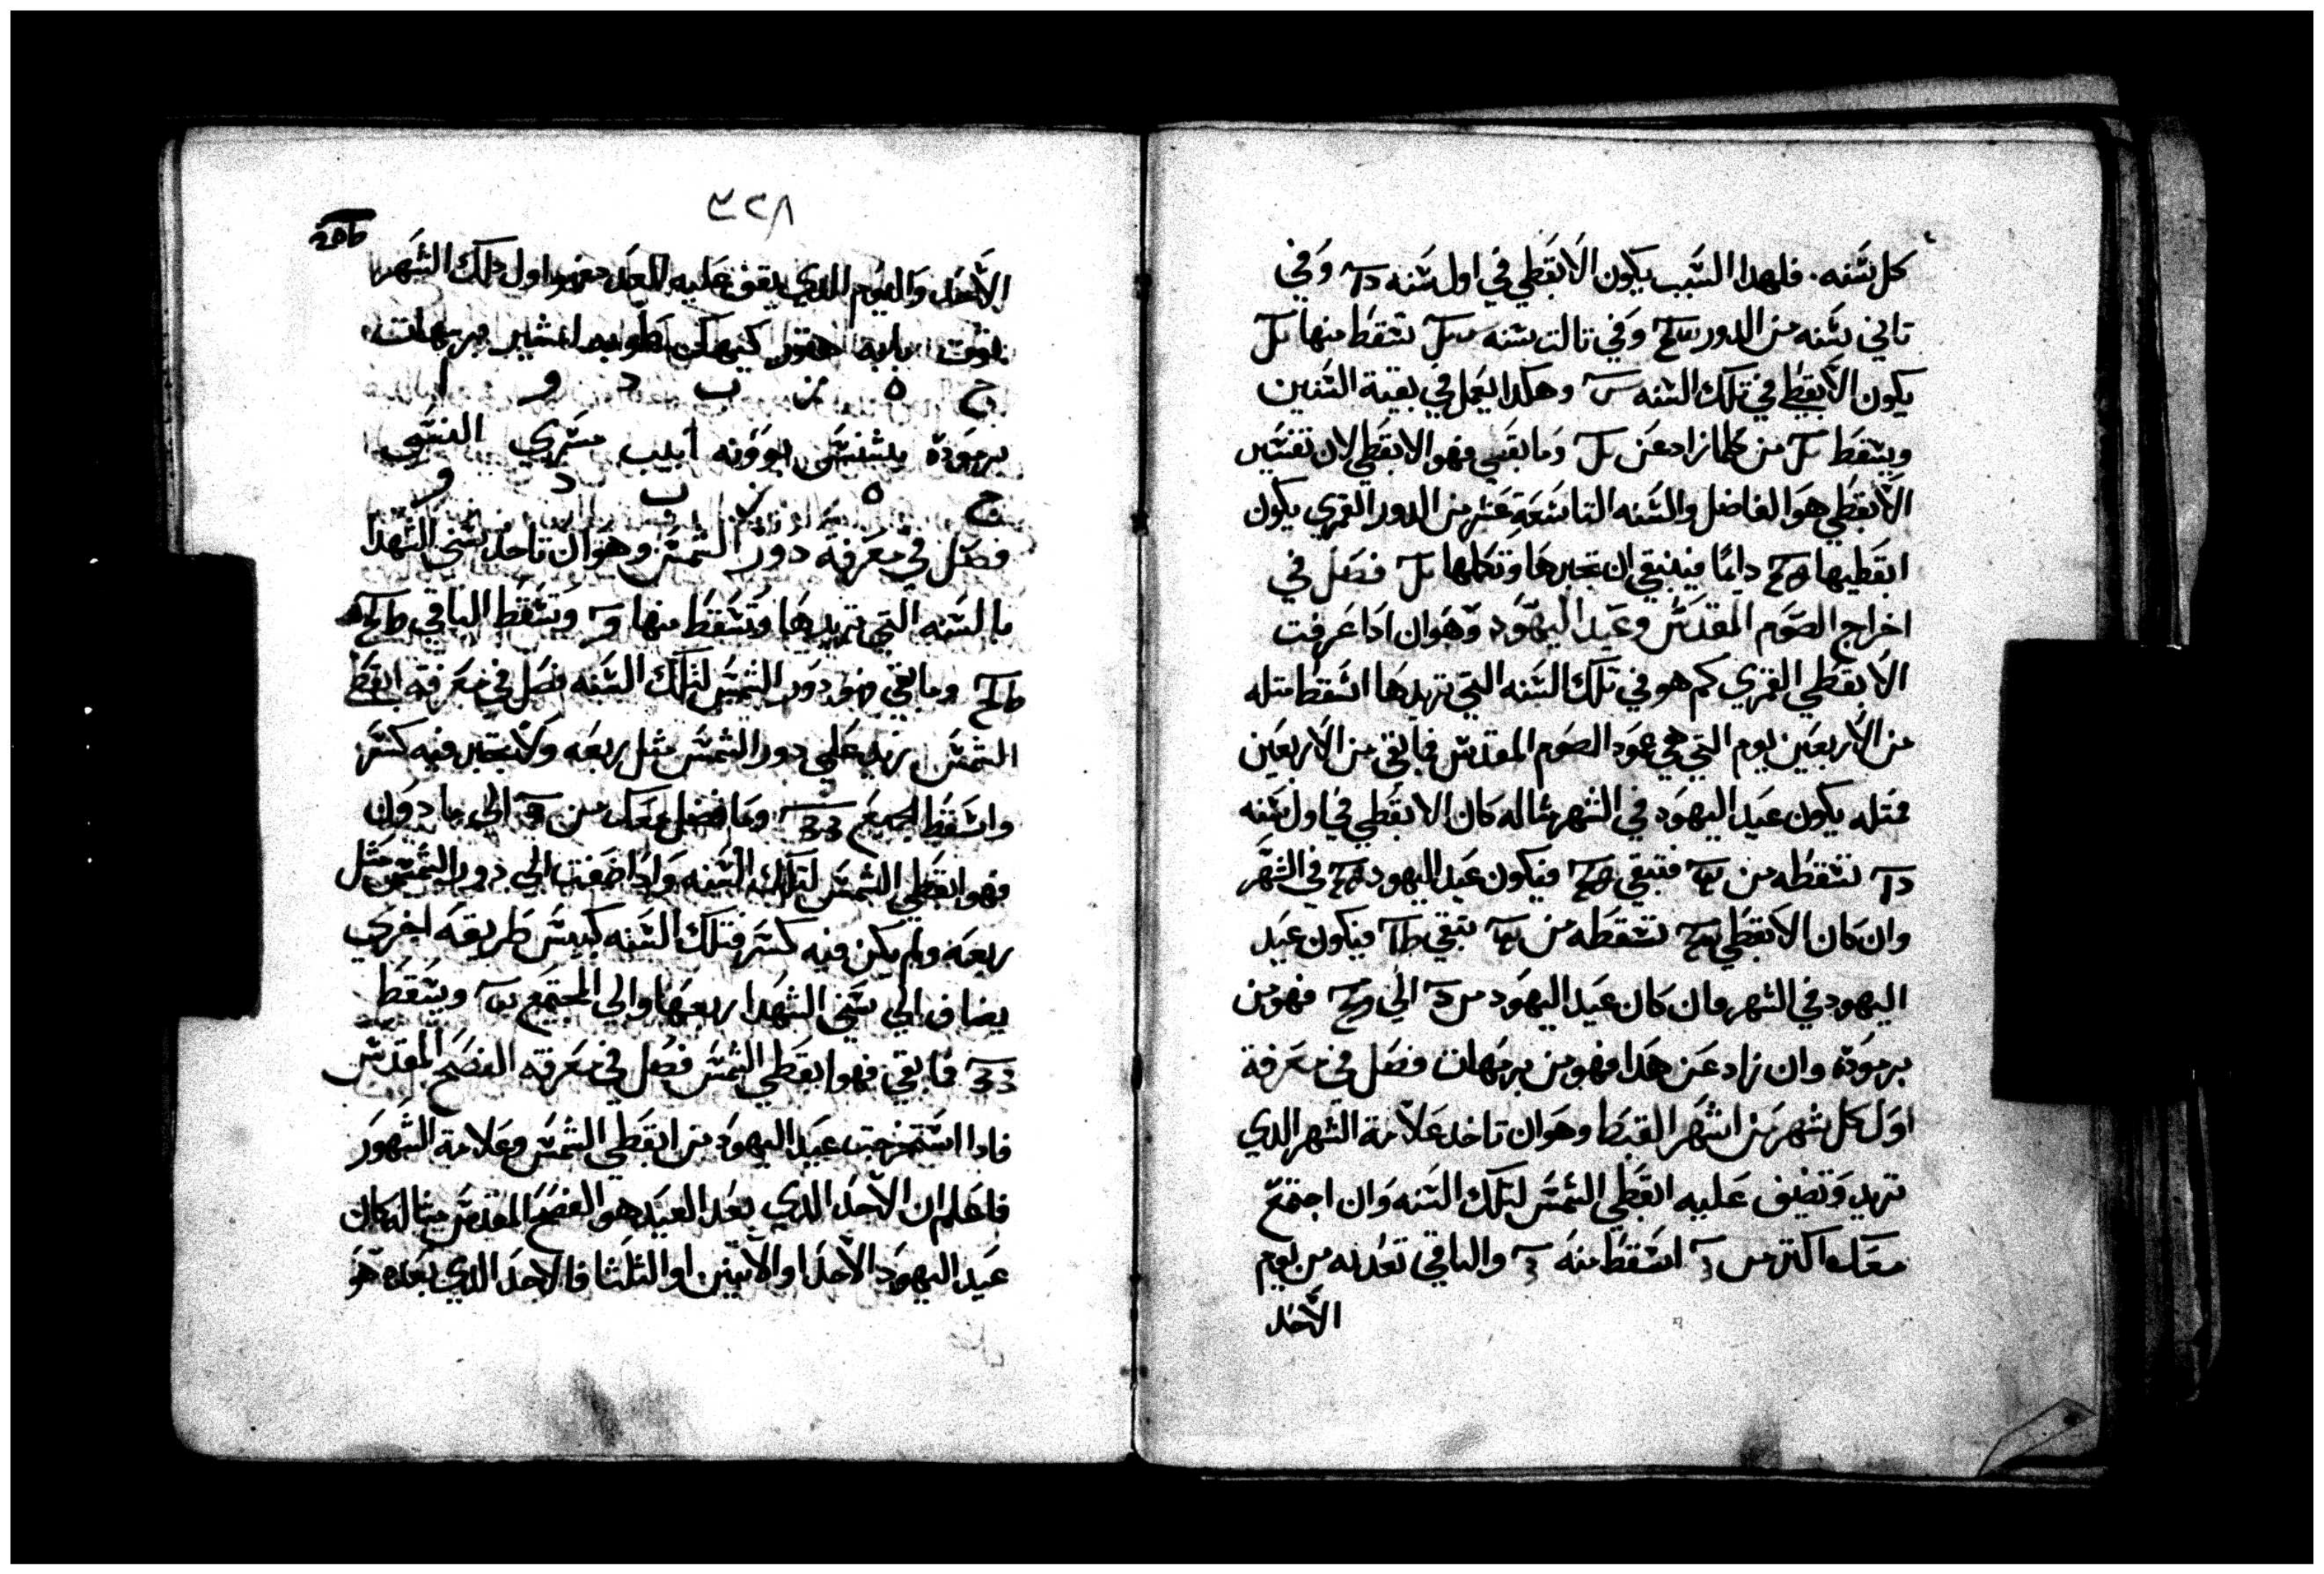 كل سنه . فلهدا السبب يكون الابقطي في اول سنه وفي
تاني سنه من الدور وفي تالت سنه تسقط منها
يكون الابقطي في تلك السنه وهكدا يعمل في بقية السنين
ويسقط من كلما زاد عن وما بقي فهو الابقطي لان تفسير
الابقطي هو الفاضل والسنه التاسعة عشر من الدور القمري يكون
ابقطيها دايما فينبقي ان تجبرها وتكملها فصل في
اخراج الصوم المقدس وعيد اليهود وهو ان ادا عرفت
الابقطي القمري كم هو في تلك السنه التي تريدها اسقط متله
من الاربعين يوم التي هي عود الصوم المقدس فما بقي من الاربعين
فمتله يكون عيد اليهود في الشهر متاله كان الابقطي في اول سنه
تسقطه من فتبقي فيكون عيد اليهود في الشهر
وان كان الابقطي تسقطه من تبقي فيكون عيد
اليهود في الشهر فان كان عيد اليهود من الي فهو من
برموده وان زاد عن هدا فهو من برمهات فصل في معرفة
اول كل شهر من اشهر القبط وهو ان تاخد علامة الشهر الدي
تريد وتضيف عليه ابقطي الشمس لتلك السنه وان اجتمع
معك اكتر من اسقط منه والباقي تعد له من يوم
الاحد
٣٢٨
الاحد واليوم الدي يقف عليه العدد فهو اول دلك الشهر
توت بابه هتور كيهك طوبه امشير برمهات
ح ه ز ب د و ا
برموده بشنس بوونه ابيب مسري النسي
ج ه ز ب د و
فصل في معرفة دور الشمس وهو ان تاخد سني الشهدا
بالسنه التي تريدها وتسقط منها وتسقط الباقي
وما بقي فهو دور الشمس لتلك السنه فصل في معرفة ابقطي
الشمس تزيد علي دور الشمس متل ربعه ولا تجبر فيه كسر
واسقط الجميع وما فضل معك من الي ما دون
فهو ابقطي الشمس لتلك السنه وادا ضفت الي دور الشمس متل
ربعه ولم يكن فيه كسر فتلك السنه كبيس طريقه اخري
يضاف الي سني الشهدا ربعها والي المجتمع ويسقط
فما بقي فهو ابقطي الشمس فصل في معرفة الفصح المقدس
فادا استخرجت عيد اليهود من ابقطي الشمس وعلامة الشهور
فاعلم ان الاحد الدي بعد العيد هو الفصح المقدس متاله كان
عيد اليهود الاحد او الاتنين او التلتا فالاحد الدي بعده هو